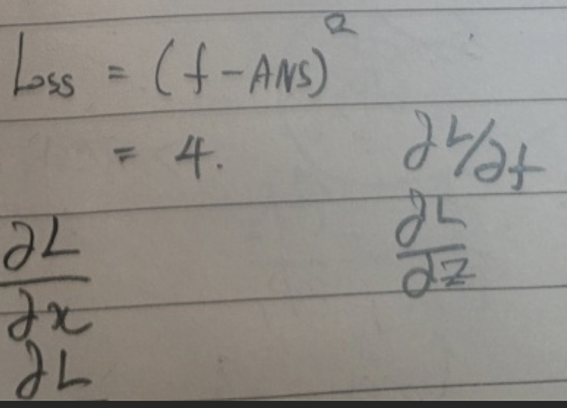 Loss = (f - ANS)²
= 4.
∂L/∂f
∂L/∂z
∂L/∂x
∂L